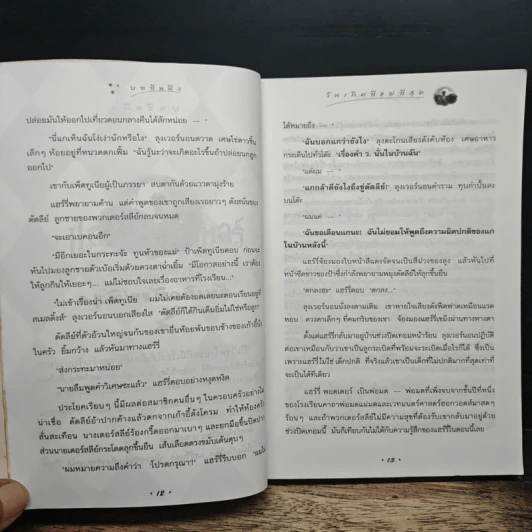 บทที่หนึ่ง
ปล่อยมันให้ออกไปเที่ยวตอนกลางคืนได้สักหน่อย —"
"นี่แกเห็นฉันโง่เง่านักหรือไง" ลุงเวอร์นอนตวาด เศษไข่ดาวชิ้น
เล็กๆ ห้อยอยู่ที่หนวดดกเฟิ้ม "ฉันรู้นะว่าจะเกิดอะไรขึ้นถ้าปล่อยนกฮูก
ออกไป"
เขากับเพ็ตทูเนียผู้เป็นภรรยา สบตากันด้วยแววตามุ่งร้าย
แฮร์รี่พยายามค้าน แต่คำพูดของเขาถูกเสียงเรอยาวๆ ดังสนั่นของ
ดัดลีย์ ลูกชายของพวกเดอร์สลีย์กลบจนหมด
"จะเอาเบคอนอีก"
"มีอีกเยอะในกระทะจ้ะ ทูนหัวของแม่" ป้าเพ็ตทูเนียตอบ ก่อนจะ
หันไปมองลูกชายตัวเบ้อเริ่มด้วยดวงตาฉ่ำเยิ้ม "มีโอกาสอย่างนี้ เราต้อง
ให้ลูกกินให้เยอะๆ... แม่ไม่ชอบใจเลยเรื่องอาหารที่โรงเรียน..."
"ไม่เข้าเรื่องน่า เพ็ตทูเนีย ผมไม่เคยต้องอดเลยนะตอนเรียนอยู่ที่
สเมลติ้งส์" ลุงเวอร์นอนบอกเสียงใส "ดัดลีย์ก็ได้กินเต็มอิ่มไม่ใช่หรือลูก"
ดัดลีย์ที่ตัวอ้วนใหญ่จนก้นของเขายื่นห้อยพ้นขอบข้างของเก้าอี้นั่ง
ในครัว ยิ้มกว้าง แล้วหันมาทางแฮร์รี่
"ส่งกระทะมาหน่อย"
"นายลืมพูดคำวิเศษซะแล้ว" แฮร์รี่ตอบอย่างหงุดหงิด
ประโยคเรียบๆ นี้มีผลต่อสมาชิกคนอื่นๆ ในครอบครัวอย่างไม่
น่าเชื่อ ดัดลีย์อ้าปากค้างแล้วตกจากเก้าอี้ดังโครม ทำให้ห้องครัว
สั่นสะเทือน นางเดอร์สลีย์ร้องกรี๊ดออกมาเบาๆ และยกมือขึ้นปิดปาก
ส่วนนายเดอร์สลีย์กระโดดลุกขึ้นยืน เส้นเลือดตรงขมับเต้นตุบๆ
"ผมหมายความถึงคำว่า 'โปรดกรุณา'!" แฮร์รี่รีบบอก "ผมไม่
• 12 •
วันเกิดที่แย่ที่สุด
ได้หมายถึง —"
"ฉันบอกแกว่ายังไง" ลุงตะโกนเสียงดังคับห้อง เศษอาหาร
กระเด็นไปทั่วโต๊ะ "เรื่องคำ ว. นั่นในบ้านฉัน"
"แต่ผม —"
"แกกล้าดียังไงถึงขู่ดัดลีย์!" ลุงเวอร์นอนคำราม ทุบกำปั้นลง
บนโต๊ะ
"ผมแค่ —"
"ฉันขอเตือนแกนะ! ฉันไม่ยอมให้พูดถึงความผิดปกติของแก
ในบ้านหลังนี้"
แฮร์รี่จ้องมองใบหน้าสีแดงจัดจนเป็นสีม่วงของลุง แล้วหันไปที่
หน้าซีดขาวของป้าซึ่งกำลังพยายามพยุงดัดลีย์ให้ลุกขึ้นยืน
"ตกลงฮะ" แฮร์รี่ตอบ "ตกลง..."
ลุงเวอร์นอนนั่งลงตามเดิม เขาหายใจเสียงดังฟืดฟาดเหมือนแรด
หอบ ดวงตาเล็กๆ ที่คมกริบของเขา จ้องมองแฮร์รี่เขม็งผ่านทางหางตา
ตั้งแต่แฮร์รี่กลับมาอยู่บ้านช่วงปิดเทอมหน้าร้อน ลุงเวอร์นอนปฏิบัติ
ต่อเขาเหมือนกับว่าเขาเป็นลูกระเบิดที่พร้อมจะระเบิดเมื่อไรก็ได้ ซึ่งเป็น
เพราะแฮร์รี่ไม่ใช่เด็กปกติ ที่จริงแล้วเขาเป็นเด็กที่ไม่ปกติมากที่สุดเท่าที่
จะเป็นได้ทีเดียว
แฮร์รี่ พอตเตอร์ เป็นพ่อมด — พ่อมดที่เพิ่งจบจากชั้นปีที่หนึ่ง
ของโรงเรียนคาถาพ่อมดแม่มดและเวทมนตร์ศาสตร์ฮอกวอตส์มาสดๆ
ร้อนๆ และถ้าพวกเดอร์สลีย์ไม่มีความสุขที่ต้องรับเขากลับมาอยู่ด้วย
ช่วงปิดเทอมนี้ มันก็เทียบกันไม่ได้กับความรู้สึกของแฮร์รี่ในตอนนี้เลย
• 13 •